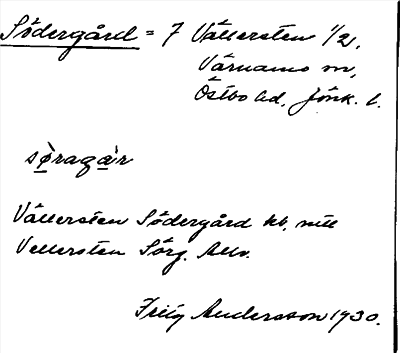 Södergård = 7 Vällersten 1/2,
Värnamo m,
Östbo hd, Jönk. l.
sø̀ragàr
Vällersten Södergård kb, mtl
Vellersten Sörg. Allv.
Andersson 1930.